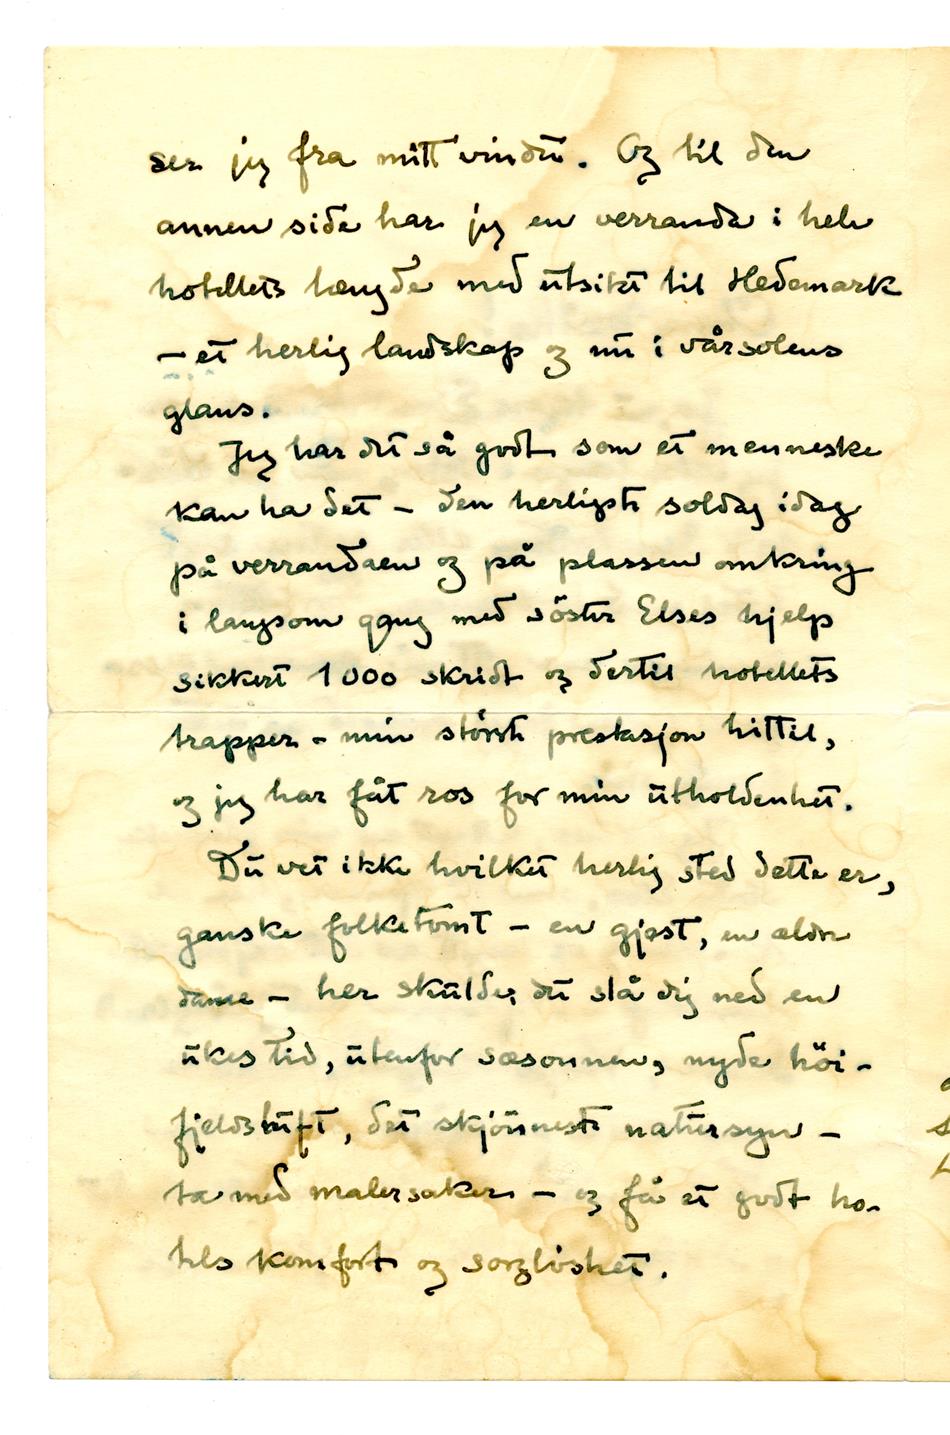 ser jeg fra mitt vindu. Og til den
annen side har jeg en verranda i hele
hotellets længde med utsikt til Hedemark
– et herlig landskap og nu i vårsolens
glans.
Jeg har det så godt som et menneske
kan ha det – den herligste soldag idag
på verrandaen og på plassen omkring
i langsom gang med söster Elses hjelp
sikkert 1000 skridt og dertil hotellets
trapper – min störste prestasjon hittil,
og jeg har fåt ros for min utholdenhet.
Du vet ikke hvilket herlig sted dette er,
ganske folketomt – en gjest, en ældre
dame – her skulde du slå dig ned en
ukes tid, utenfor sæsonnen, nyde höi-
fjeldsluft, det skjönneste natursyn –
ta med malersaker – og få et godt ho-
tels komfort og sorglöshet.